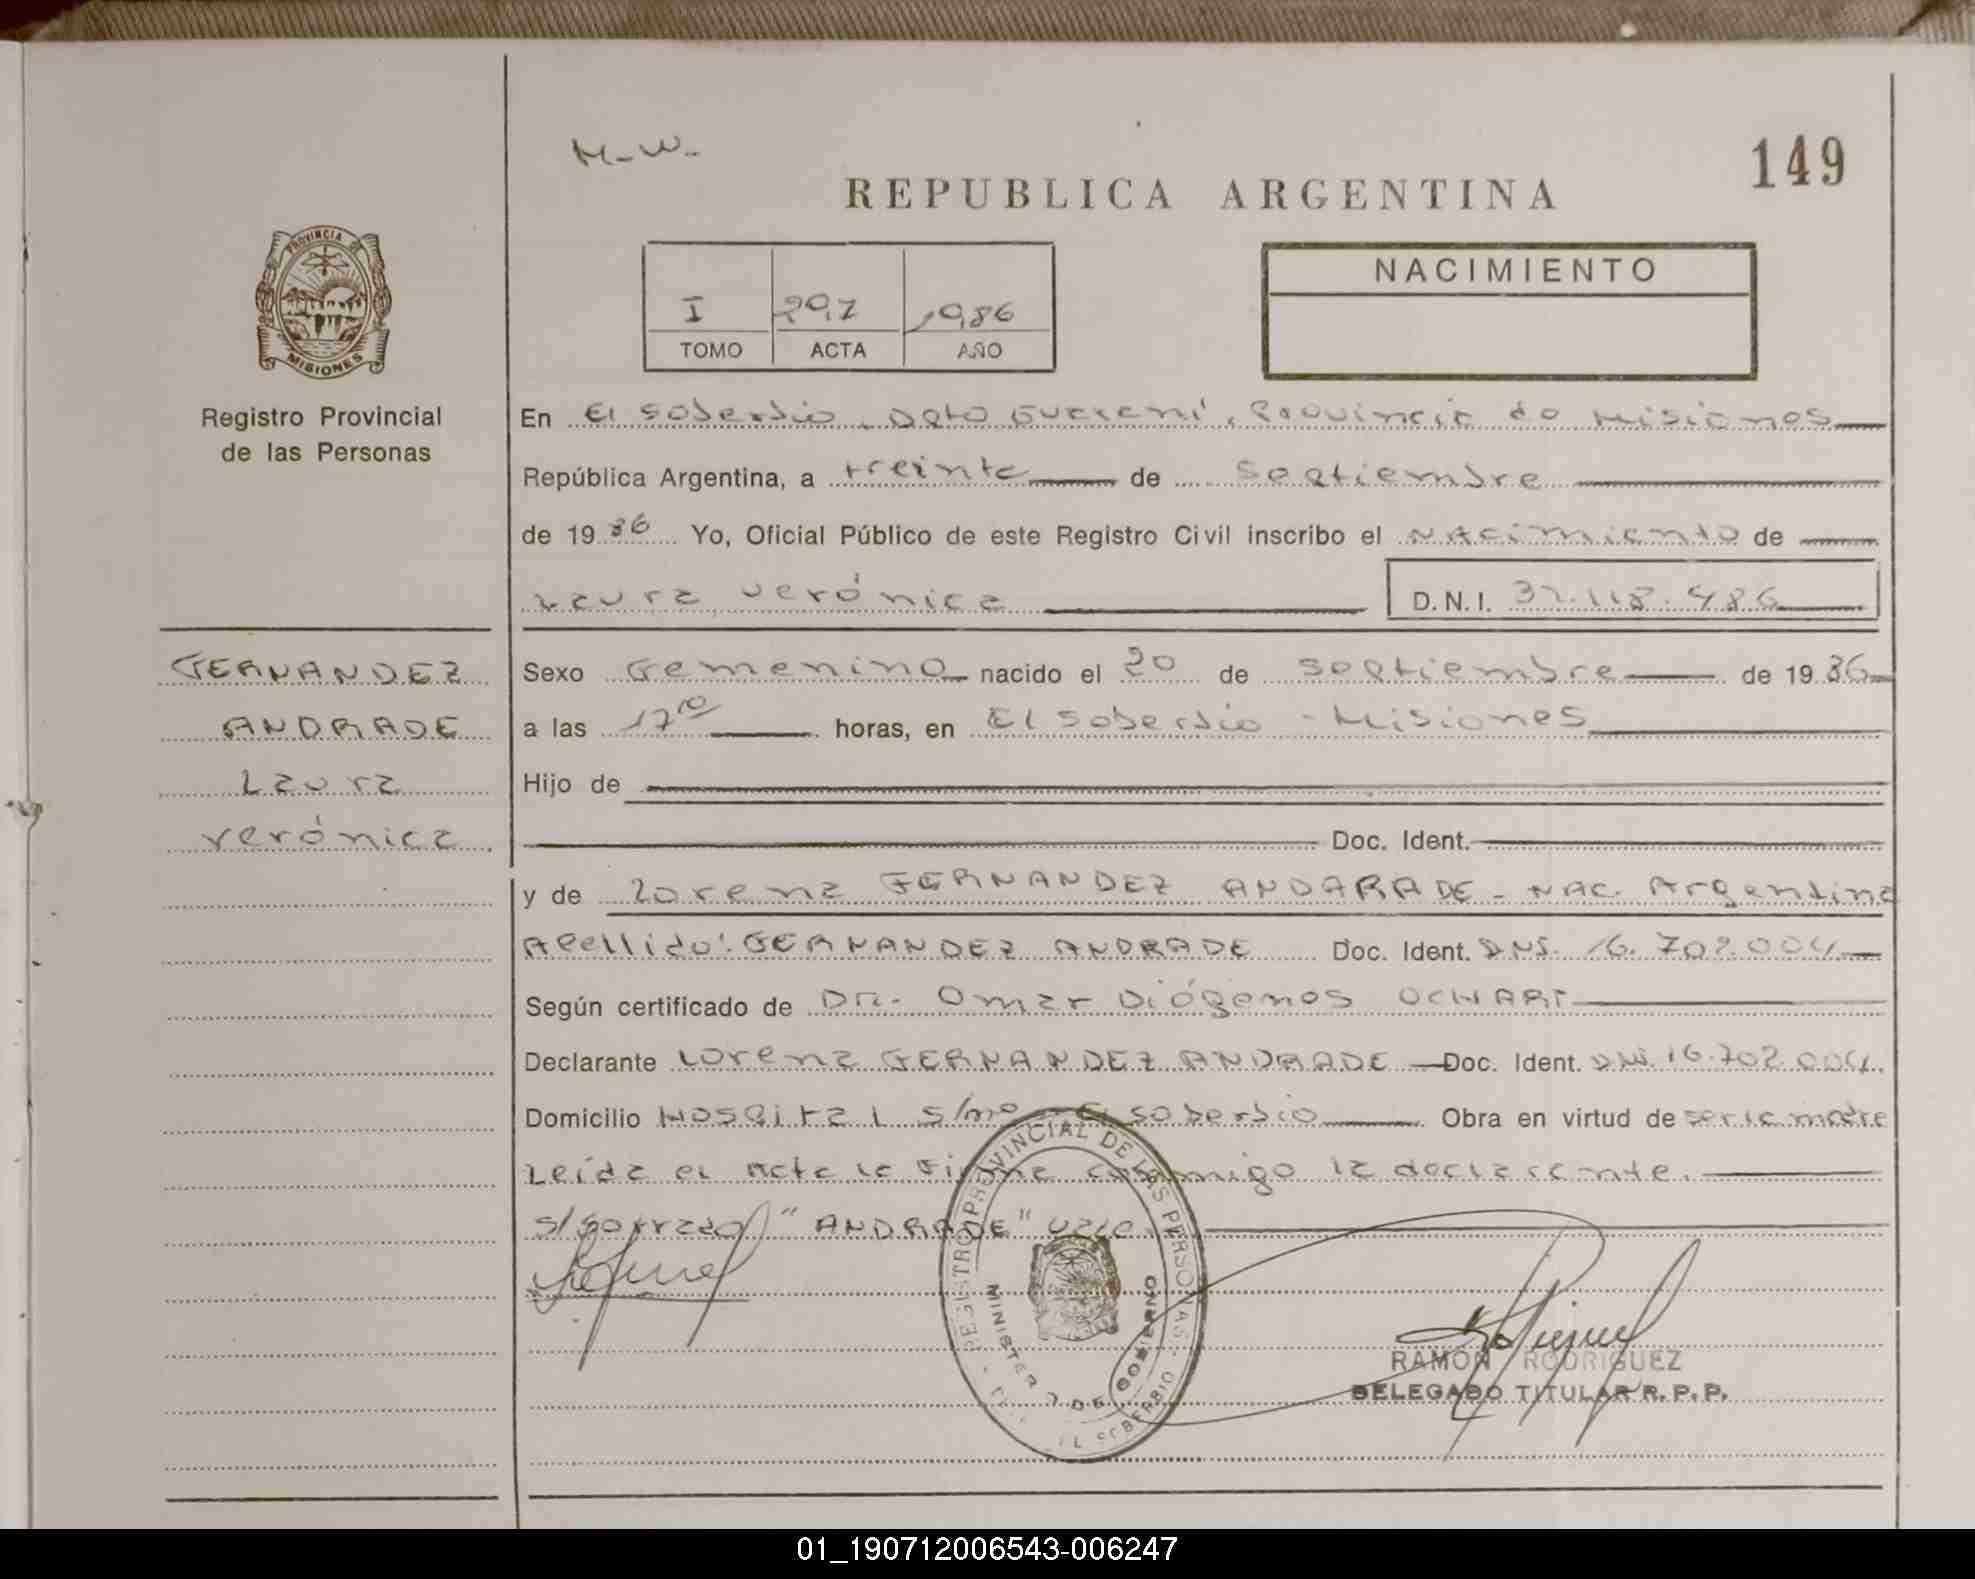 M-W-
149
REPUBLICA ARGENTINA
PROVINCIA DE
MISIONES
Registro Provincial
de las Personas
I 297 1986
TOMO ACTA AÑO
NACIMIENTO
En El Soberbio, Dpto Guaraní, Provincia de Misiones
República Argentina, a treinta de Septiembre
de 1986 Yo, Oficial Público de este Registro Civil inscribo el Nacimiento de
Laura Verónica D.N.I. 32.118.486
FERNANDEZ
ANDRADE
Laura
Verónica.
Sexo Femenino nacido el 20 de Septiembre de 1986
a las 17 10 horas, en El Soberbio - Misiones
Hijo de
Doc. Ident.
y de Lorena FERNANDEZ ANDARADE - NAC. Argentina
Apellido: FERNANDEZ ANDRADE Doc. Ident. DNI. 16.702.004
Según certificado de Dr. Omar Diógenes OCHART
Declarante Lorena FERNANDEZ ANDRADE Doc. Ident. DNI. 16.702.004.
Domicilio Hospital s/no El Soberbio Obra en virtud de ser la madre
Leída el Acta la firma conmigo la declarante.
s/borrado "ANDRADE" vale
REGISTRO PROVINCIAL DE LAS PERSONAS
DE GOBIERNO
EL SOBERBIO
RAMON RODRIGUEZ
DELEGADO TITULAR R.P.P.
01_190712006543-006247